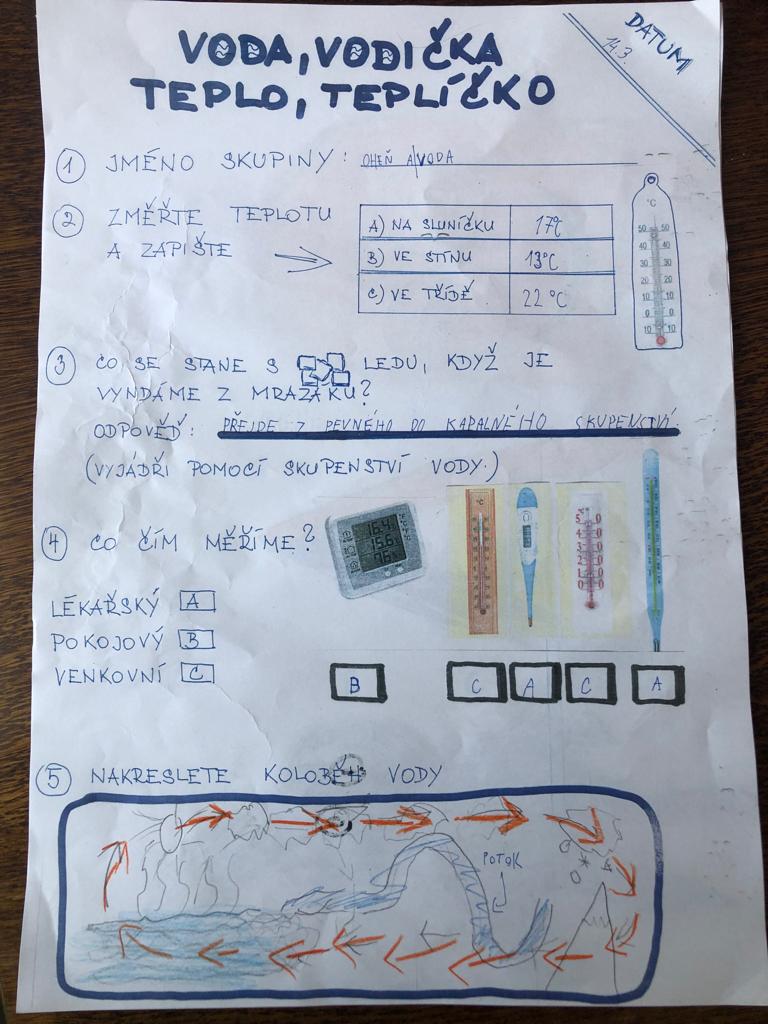 VODA, VODIČKA
TEPLO, TEPLÍČKO
DATUM
14.3.
1 JMÉNO SKUPINY: OHEŇ A VODA
2 ZMĚŘTE TEPLOTU
A ZAPIŠTE
A) NA SLUNÍČKU 17°C
B) VE STÍNU 13°C
C) VE TŘÍDĚ 22°C
°C
50 50
40 40
30 30
20 20
10 10
0 0
10 10
3 CO SE STANE S LEDU, KDYŽ JE
VYNDÁME Z MRAZÁKU?
ODPOVĚĎ: PŘEJDE Z PEVNÉHO DO KAPALNÉHO SKUPENSTVÍ
(VYJÁDŘI POMOCÍ SKUPENSTVÍ VODY.)
4 CO ČÍM MĚŘÍME?
LÉKAŘSKÝ A
POKOJOVÝ B
VENKOVNÍ C
B C A C A
5 NAKRESLETE KOLOBĚH VODY
POTOK